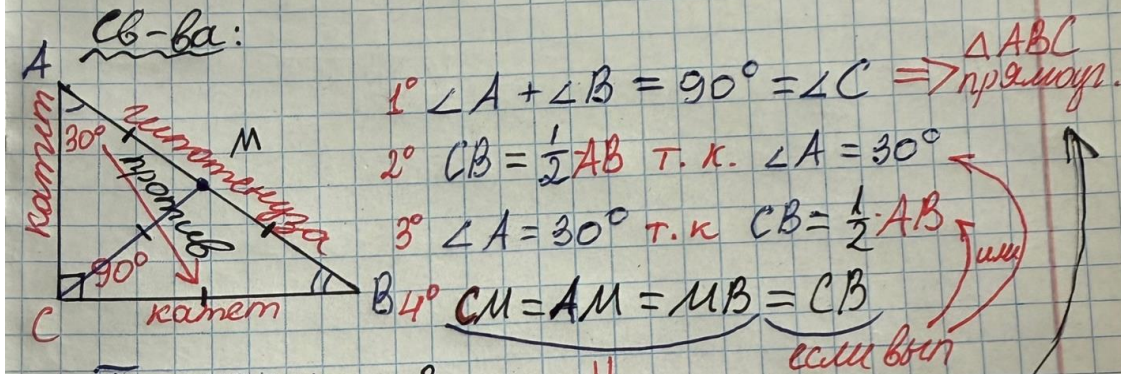 Св-ва:
A
катит
30°
гипотенуза
M
против
90°
C
катет
B
1° ∠A + ∠B = 90° = ∠C => △ABC
прямоуг.
2° CB = 1/2 AB т. к. ∠A = 30°
3° ∠A = 30° т.к CB = 1/2·AB
или
4° CM = AM = MB = CB
если вып